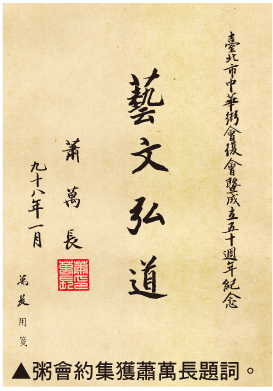 臺北市中華粥會復會暨成立五十週年紀念
藝文弘道
蕭萬長
九十八年一月
蕭萬長
萬長用箋
▲粥會約集獲蕭萬長題詞。